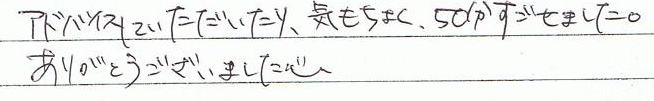 アドバイスしていただいたり、気もちよく、50分すごせました。
ありがとうございました